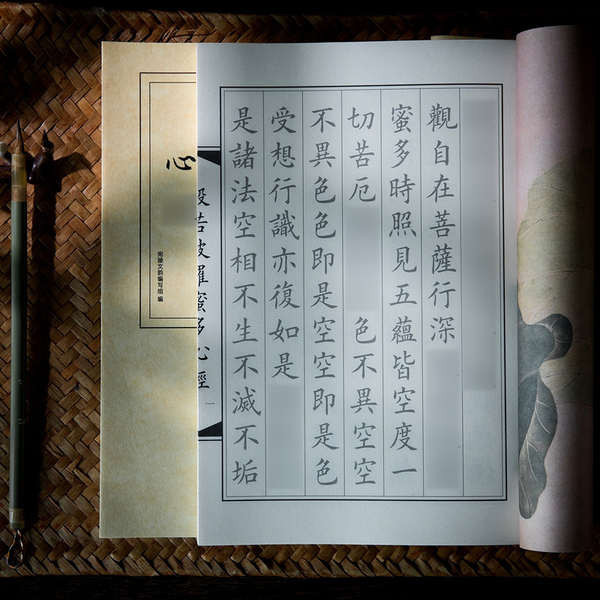 觀自在菩薩行深
蜜多時照見五蘊皆空度一
切苦厄
色不異空空
不異色色即是空空即是色
受想行識亦復如是
是諸法空相不生不滅不垢
般若波羅蜜多心經
一
心
文韵编写组 编